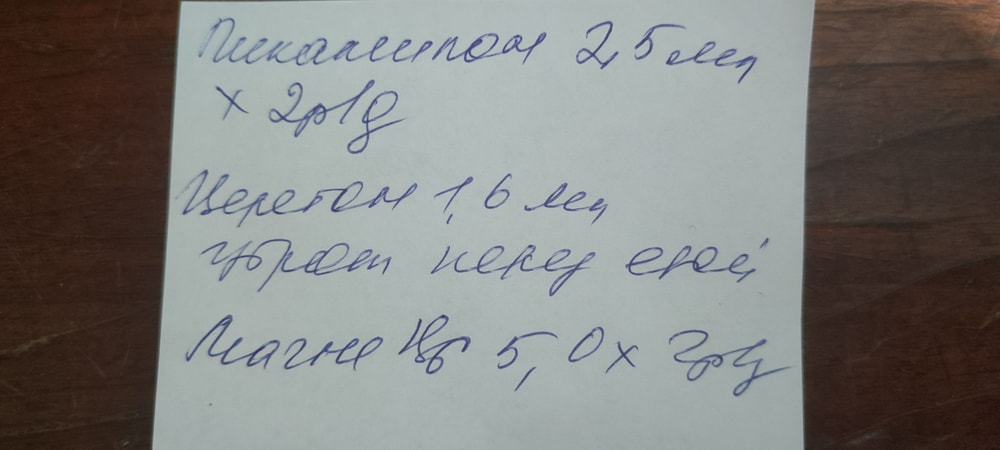 Пикамилон 2,5 мл
x 2р/д
Церетон 1,6 мл
утром перед едой
Магне В6 5,0 x 2р/д